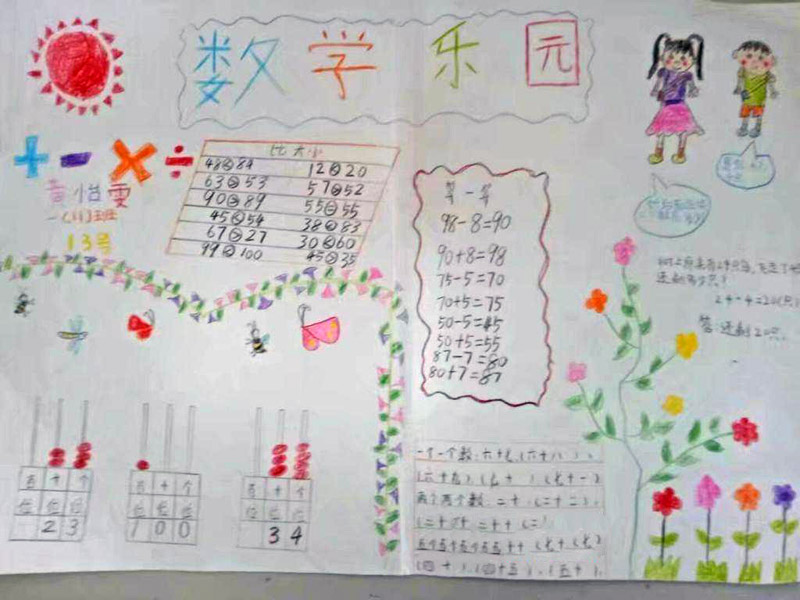 数学乐园
+ - × ÷
黄怡雯
一(11)班
13号
比大小
48<84 12<20
63>53 57>52
90>89 55=55
45<54 38<83
67>27 30<60
99<100 45>35
算一算
98-8=90
90+8=98
75-5=70
70+5=75
50-5=45
50+5=55
87-7=80
80+7=87
树上原来有24只鸟,飞走了4
还剩多少只?
24-4=20(只)
答:还剩20只.
百 十 个
位 位 位
2 3
百 十 个
位 位 位
1 0 0
百 十 个
位 位 位
3 4
一个一个数:六十七(六十八)、
(六十九)、(七十)、(七十一)
两个两个数:二十、(二十二)、
(四十)、(四十五)、(五十)、